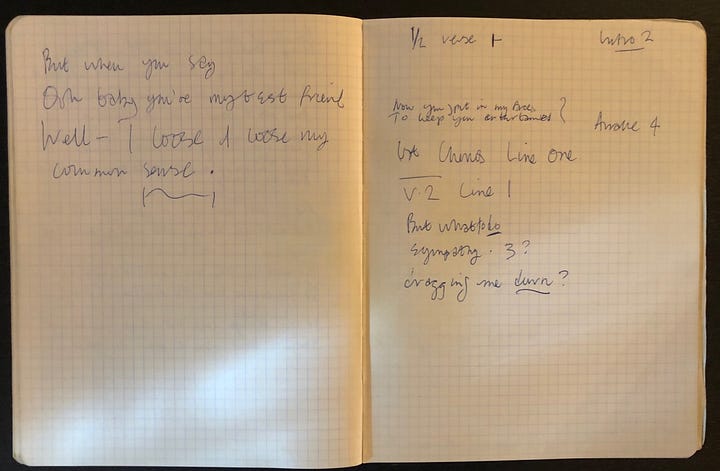 But when you say
Ooh baby you're my best friend
Well - I loose I loose my
common sense.
1/2 verse +
Intro 2
Now you spit in my face
To keep you entertained ?
Awake 4
Line one
V.2 Line 1
But what to do
sympathy. 3?
dragging me down?